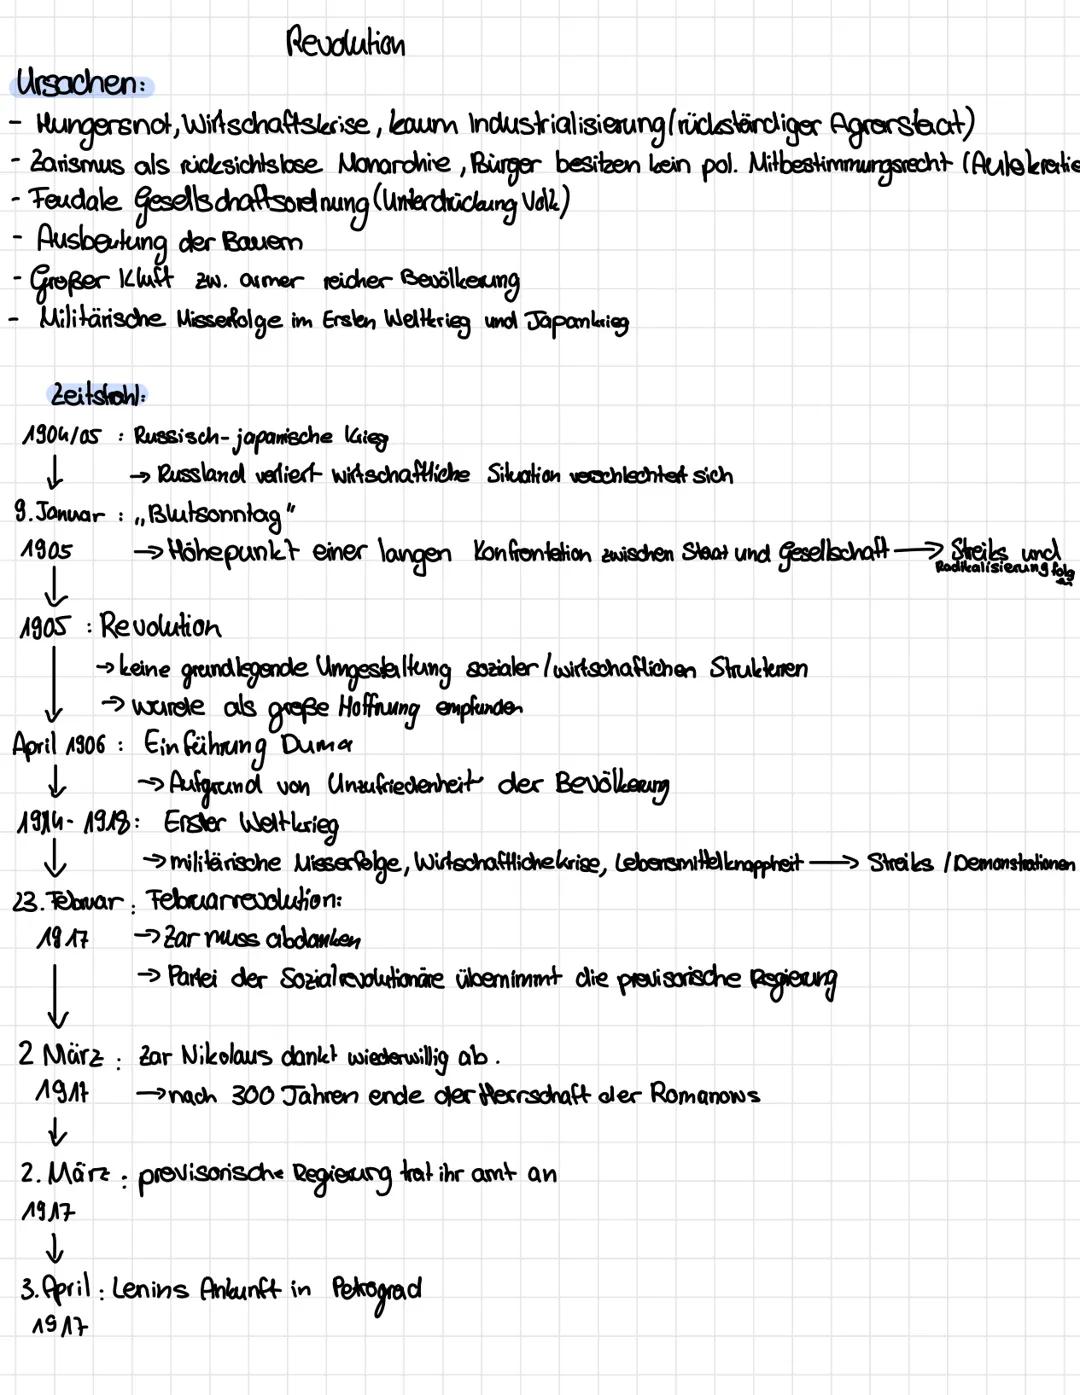 Revolution
Ursachen:
- Hungersnot, Wirtschaftskrise, kaum Industrialisierung (rückständiger Agrarstaat)
- Zarismus als rücksichtslose Monarchie, Bürger besitzen kein pol. Mitbestimmungsrecht (Autokratie
- Feudale Gesellschaftsordnung (Unterdrückung Volk)
- Ausbeutung der Bauern
- Großer Kluft zw. armer reicher Bevölkerung
- Militärische Misserfolge im Ersten Weltkrieg und Japankrieg
Zeitstrahl:
1904/05 : Russisch-japanische Krieg
↓ → Russland verliert wirtschaftliche Situation verschlechtert sich
9. Januar : „Blutsonntag"
1905 → Höhepunkt einer langen Konfrontation zwischen Staat und Gesellschaft → Streiks und
Radikalisierung folgen
↓
1905 : Revolution
→ keine grundlegende Umgestaltung sozialer / wirtschaflichen Strukturen
↓ → wurde als große Hoffnung empfunden
April 1906 : Einführung Duma
↓ → Aufgrund von Unzufriedenheit der Bevölkerung
1914-1918: Erster Weltkrieg
↓ → militärische Misserfolge, Wirtschaftlichekrise, Lebensmittelknappheit → Streiks / Demonstrationen
23. Februar : Februarrevolution:
1917 → Zar muss abdanken
↓ → Partei der Sozialrevolutionäre übernimmt die provisorische Regierung
2 März : Zar Nikolaus dankt wiederwillig ab.
1917 → nach 300 Jahren ende der Herrschaft der Romanows
↓
2. März : provisorische Regierung trat ihr amt an
1917
↓
3. April : Lenins Ankunft in Petrograd
1917